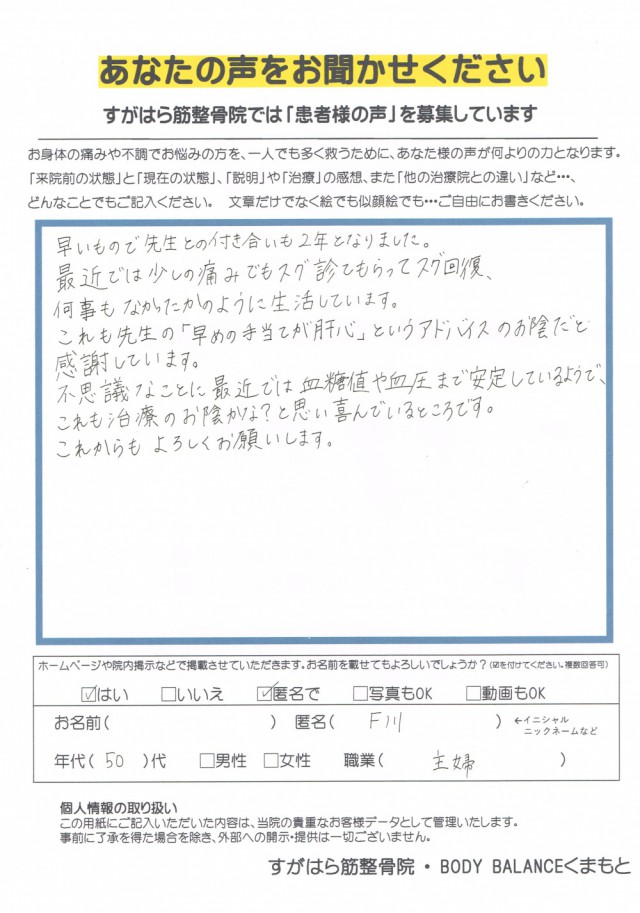 あなたの声をお聞かせください
すがはら筋整骨院では「患者様の声」を募集しています
お身体の痛みや不調でお悩みの方を、一人でも多く救うために、あなた様の声が何よりの力となります。
「来院前の状態」と「現在の状態」、「説明」や「治療」の感想、また「他の治療院との違い」など…、
どんなことでもご記入ください。 文章だけでなく絵でも似顔絵でも…ご自由にお書きください。
早いもので先生との付き合いも2年となりました。
最近では少しの痛みでもスグ診てもらってスグ回復、
何事もなかったかのように生活しています。
これも先生の「早めの手当てが肝心」というアドバイスのお陰だと
感謝しています。
不思議なことに最近では血糖値や血圧まで安定しているようで、
これも治療のお陰かな?と思い喜んでいるところです。
これからもよろしくお願いします。
ホームページや院内掲示などで掲載させていただきます。お名前を載せてもよろしいでしょうか?(☑を付けてください。複数回答可)
☑はい □いいえ ☑匿名で □写真もOK □動画もOK
お名前( ) 匿名( F川 ) ←イニシャル
ニックネームなど
年代( 50 )代 □男性 □女性 職業( 主婦 )
個人情報の取り扱い
この用紙にご記入いただいた内容は、当院の貴重なお客様データとして管理いたします。
事前に了承を得た場合を除き、外部への開示・提供は一切ございません。
すがはら筋整骨院・BODY BALANCEくまもと